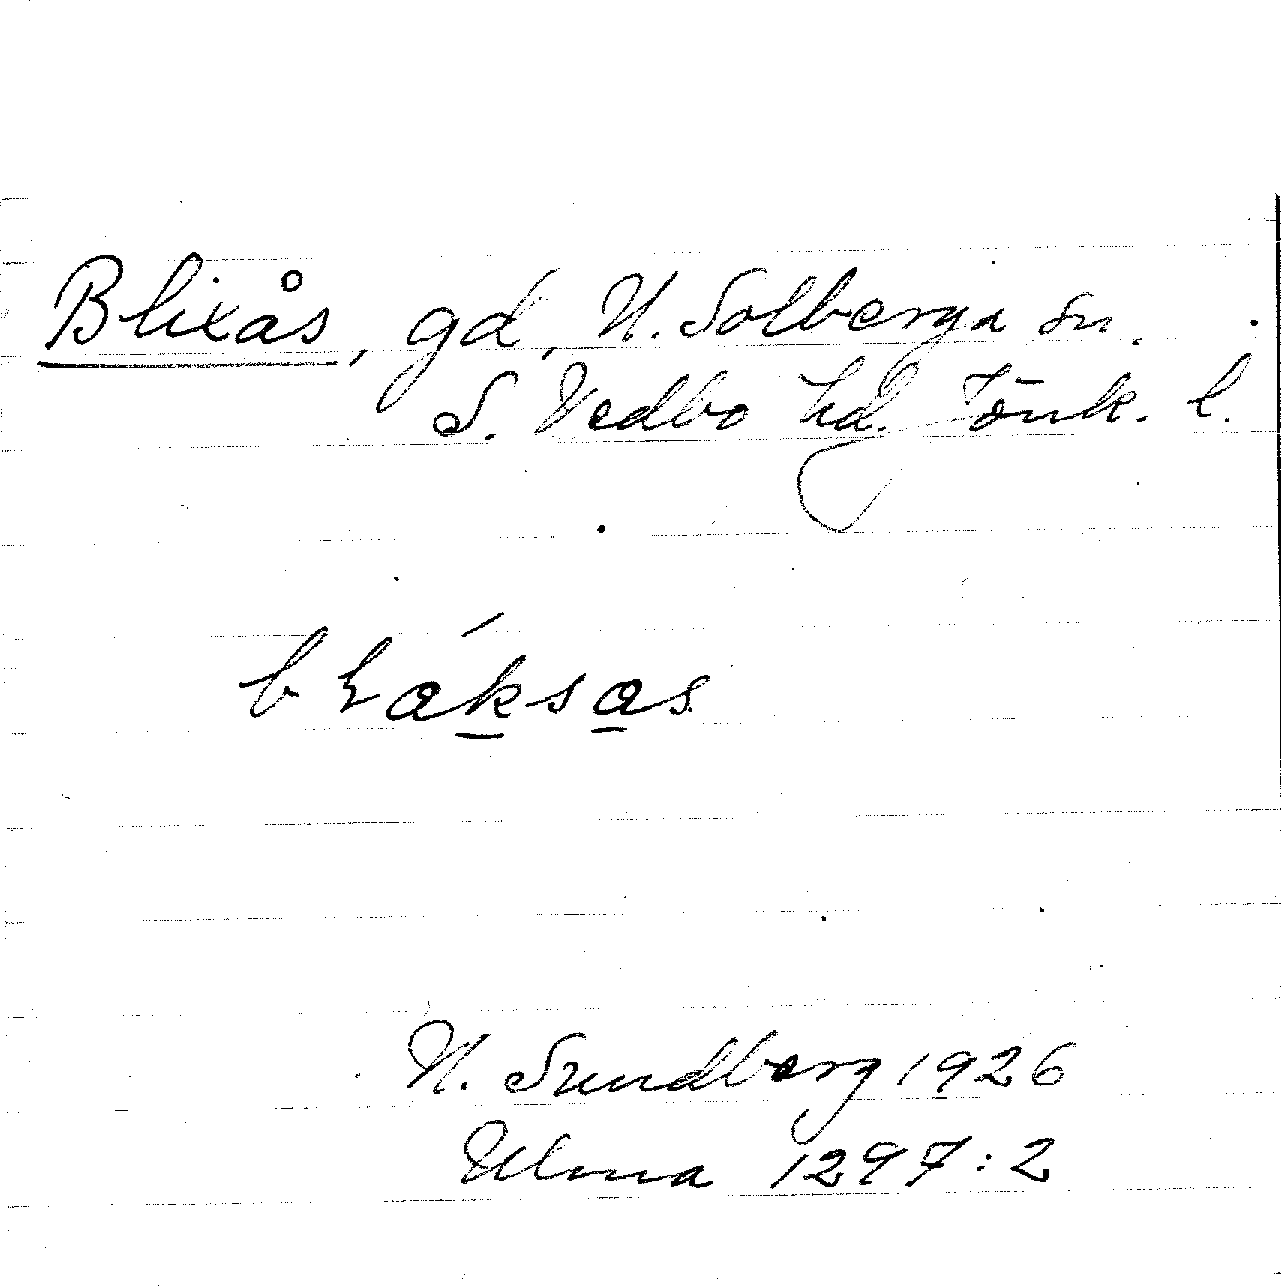 Blixås, gd, N. Solberga sn.
S. Vedbo hd. Jönk. l.
H. Sundberg 1926
Ulma 1297:2